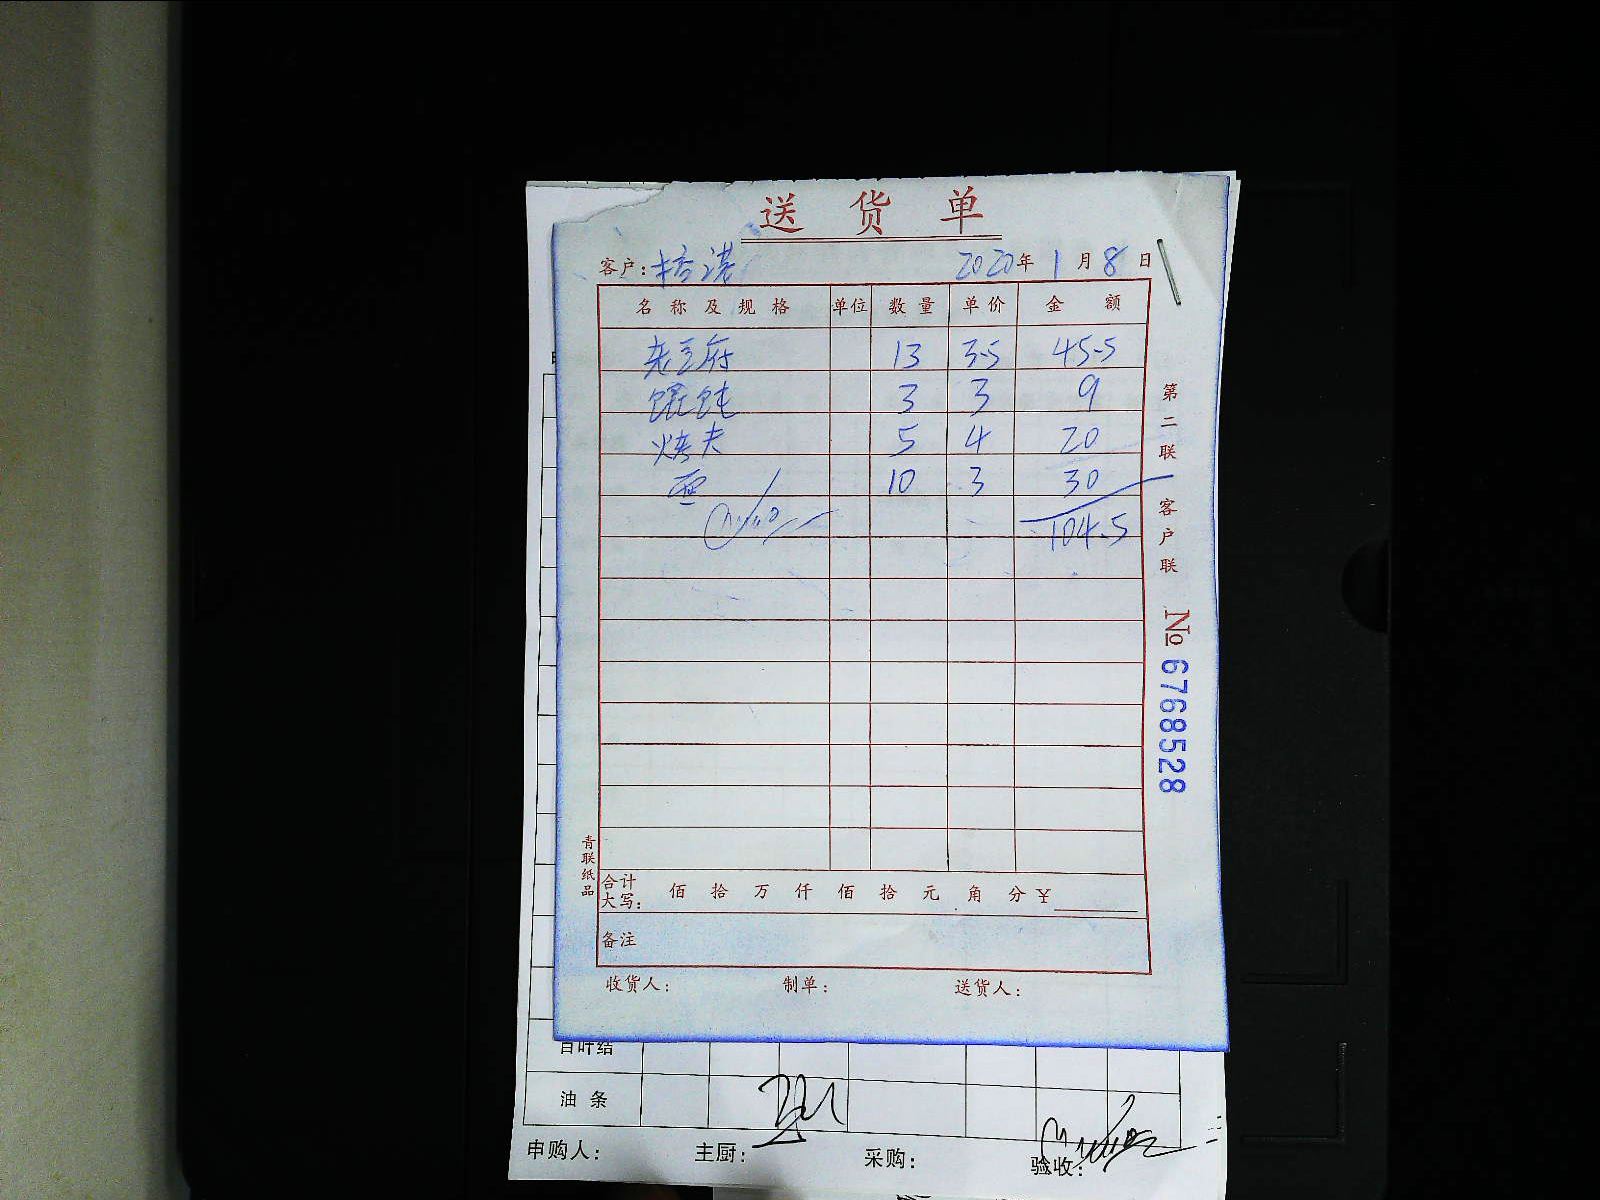 送货单
客户: 2020年1月8日
名称及规格 单位 数量 单价 金额
老豆府 13 3.5 45.5
馄饨 3 3 9
烤夫 5 4 20
面 10 3 30
104.5
第二联 客户联
No 6768528
青联纸品
合计大写: 佰 拾 万 仟 佰 拾 元 角 分 ¥
备注
收货人: 制单: 送货人:
百叶结
油条
申购人: 主厨: 采购: 验收: